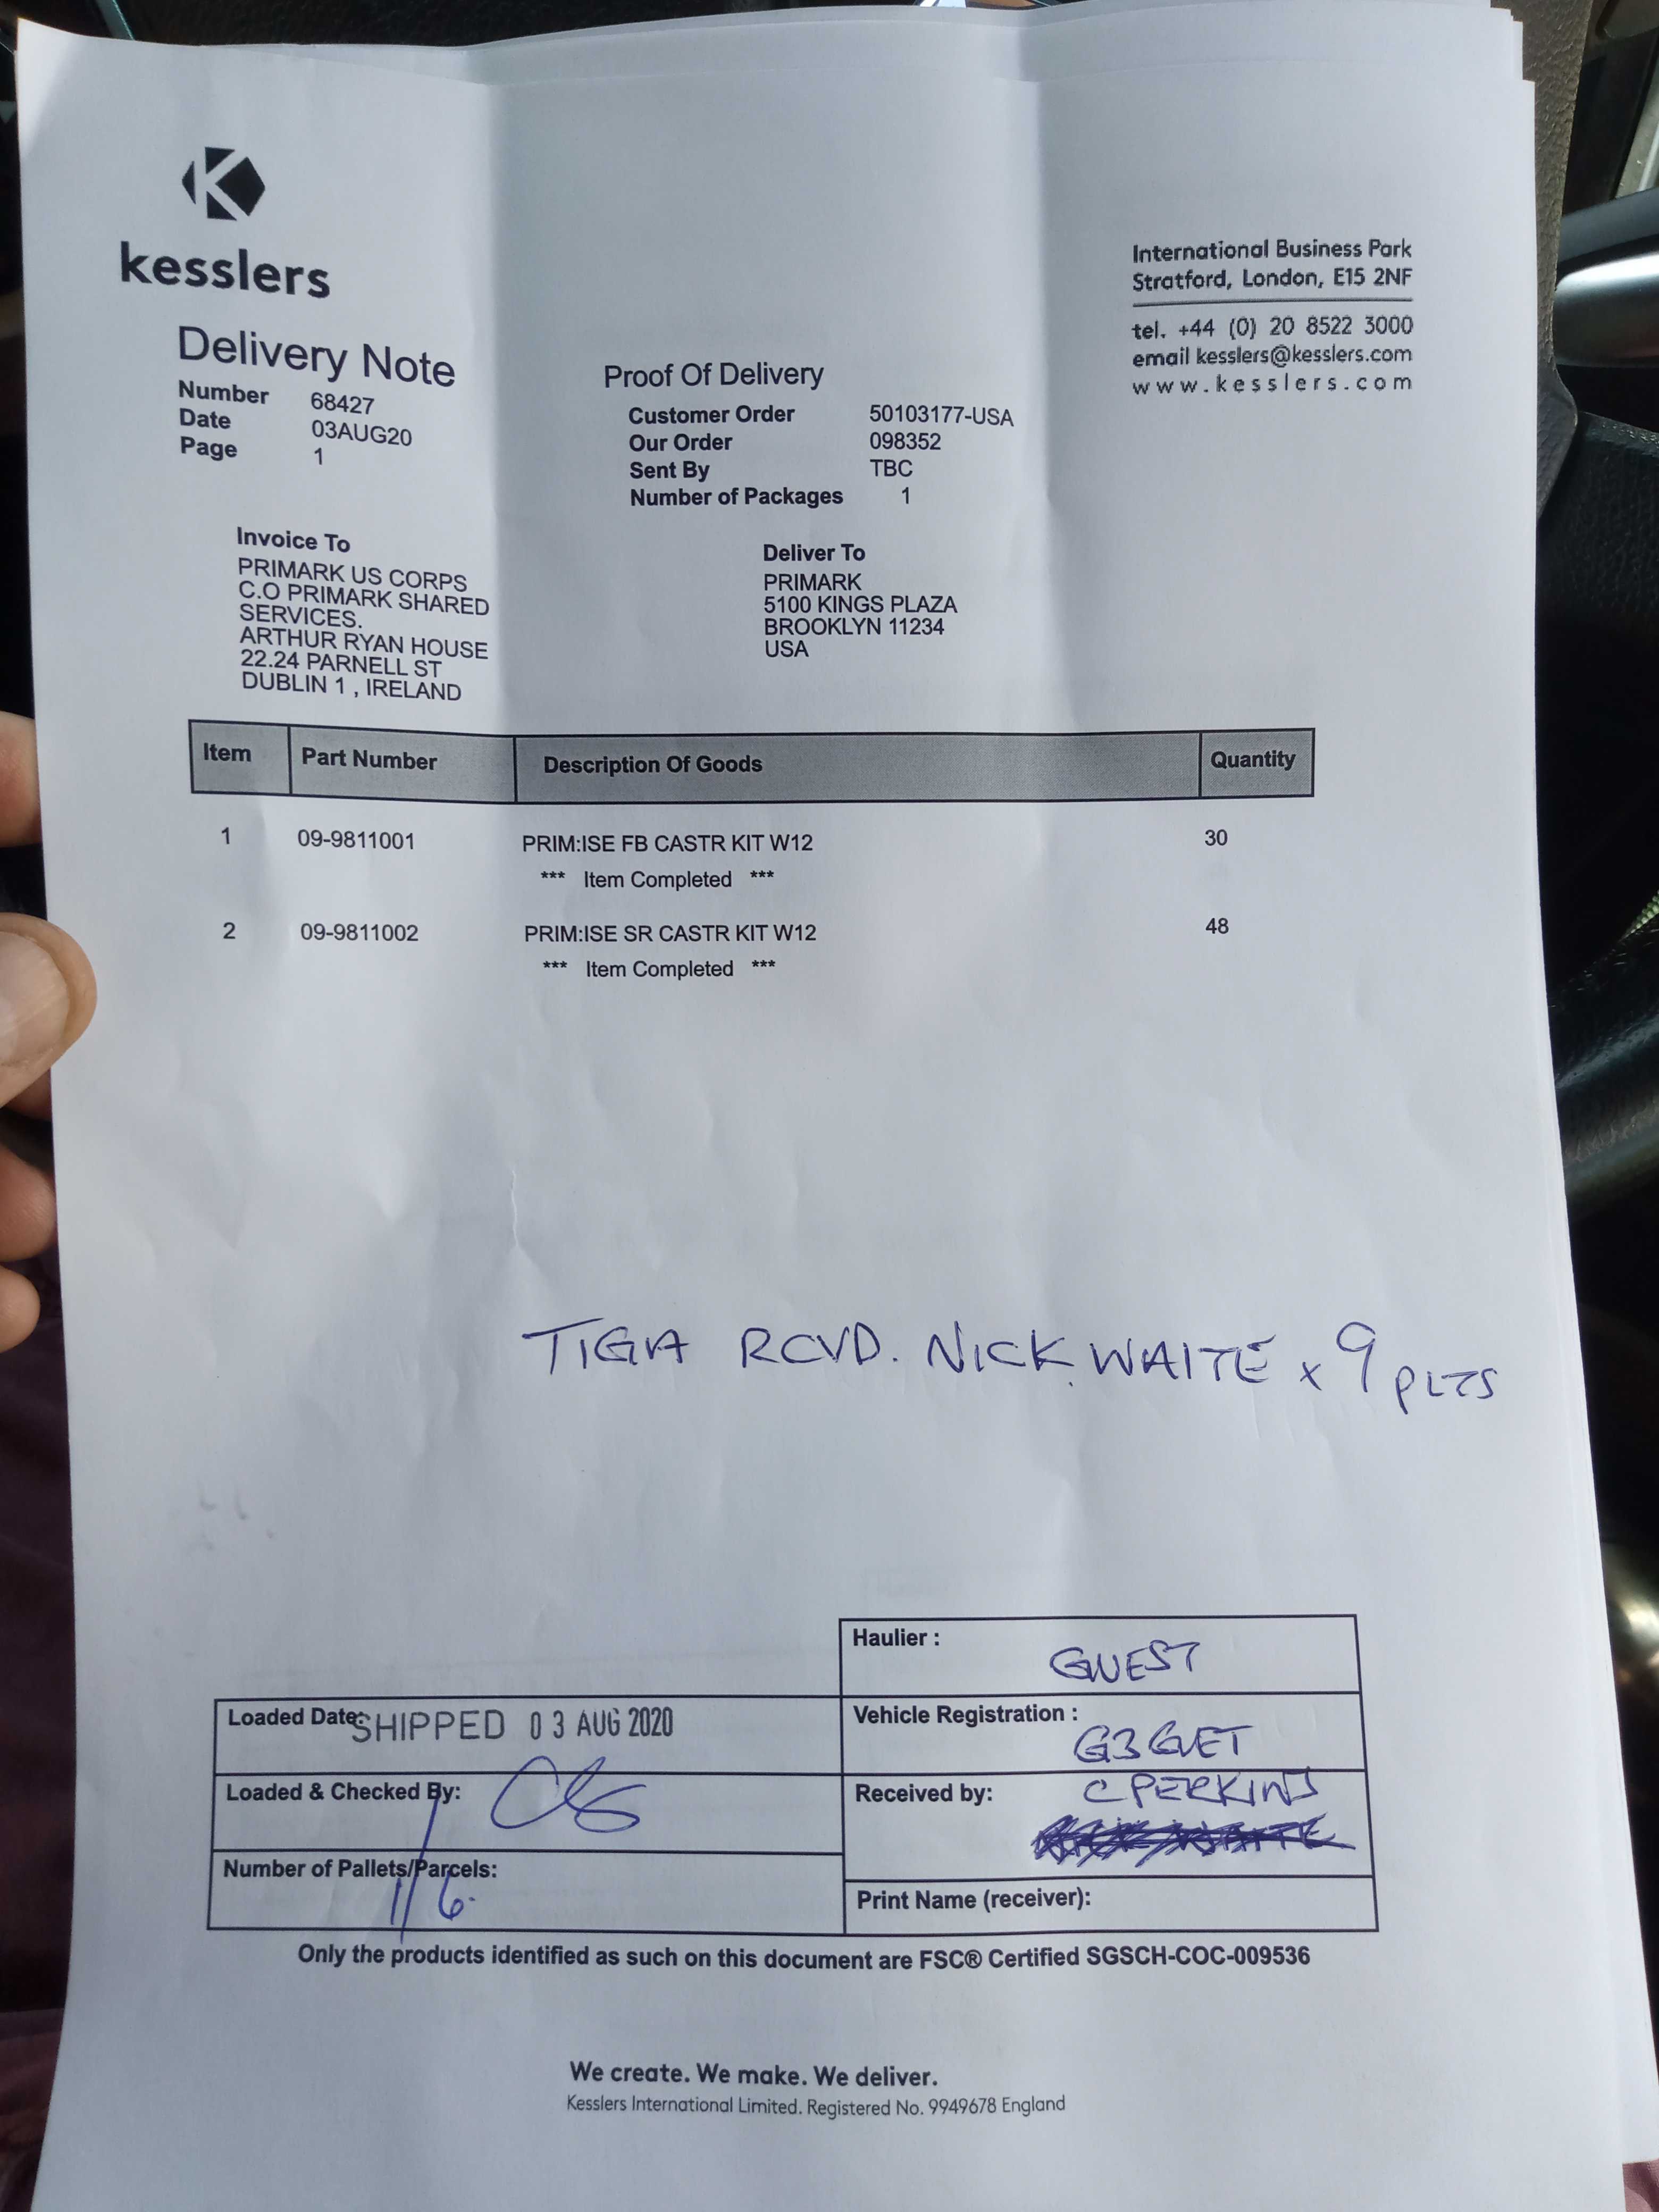 kesslers
International Business Park
Stratford, London, E15 2NF
tel. +44 (0) 20 8522 3000
email kesslers@kesslers.com
www.kesslers.com
Delivery Note
Number 68427
Date 03AUG20
Page 1
Proof Of Delivery
Customer Order 50103177-USA
Our Order 098352
Sent By TBC
Number of Packages 1
Invoice To
PRIMARK US CORPS
C.O PRIMARK SHARED
SERVICES.
ARTHUR RYAN HOUSE
22.24 PARNELL ST
DUBLIN 1 , IRELAND
Deliver To
PRIMARK
5100 KINGS PLAZA
BROOKLYN 11234
USA
Item Part Number Description Of Goods Quantity
1 09-9811001 PRIM:ISE FB CASTR KIT W12 30
*** Item Completed ***
2 09-9811002 PRIM:ISE SR CASTR KIT W12 48
*** Item Completed ***
TIGA RCVD. NICK WAITE x 9 PLTS
Haulier : GUEST
Loaded Date: SHIPPED 03 AUG 2020
Vehicle Registration : G3 GUET
Loaded & Checked By:
Received by: C PERKINS
Number of Pallets/Parcels: 1/6.
Print Name (receiver):
Only the products identified as such on this document are FSC® Certified SGSCH-COC-009536
We create. We make. We deliver.
Kesslers International Limited. Registered No. 9949678 England